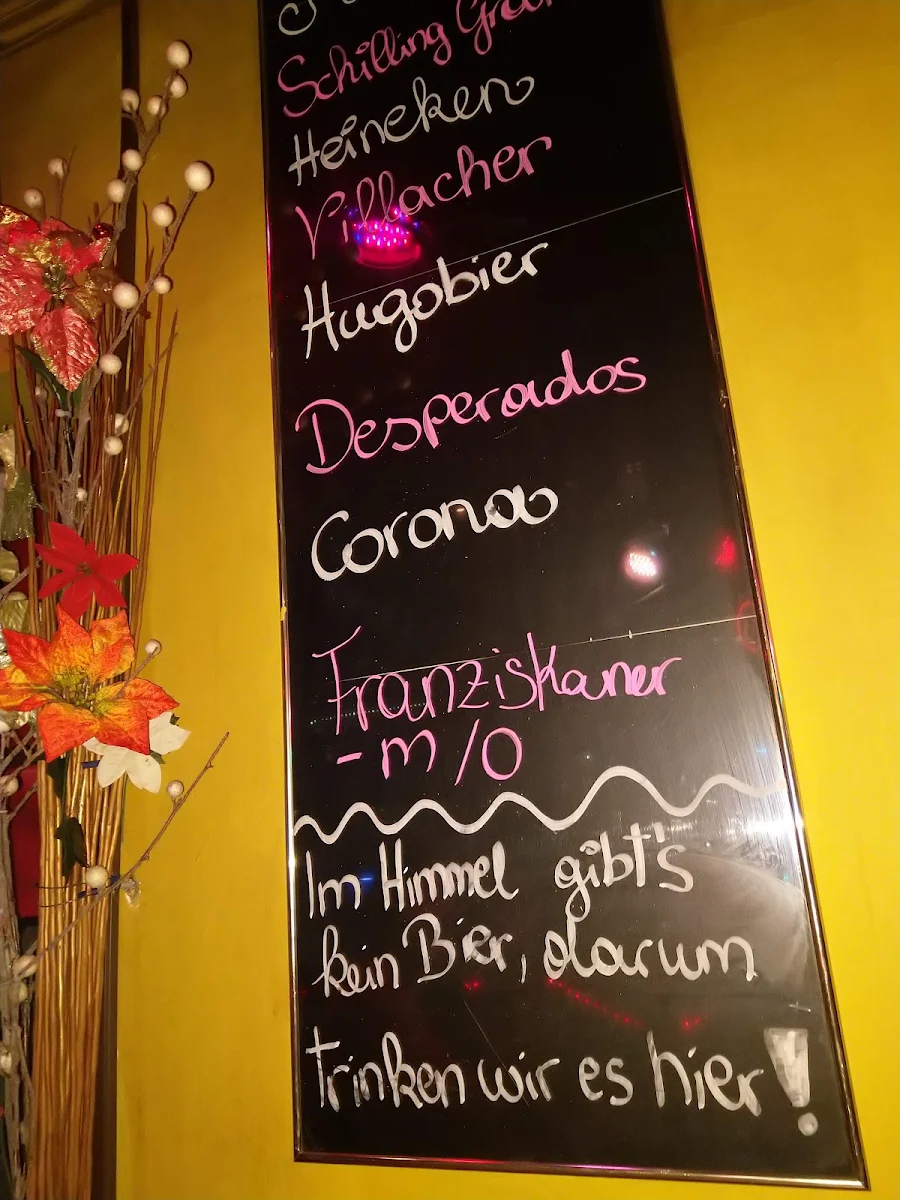 Schilling
Heineken
Villacher
Hugobier
Desperados
Corona
Franziskaner
- m / O
Im Himmel gibt's
kein Bier, darum
trinken wir es hier!